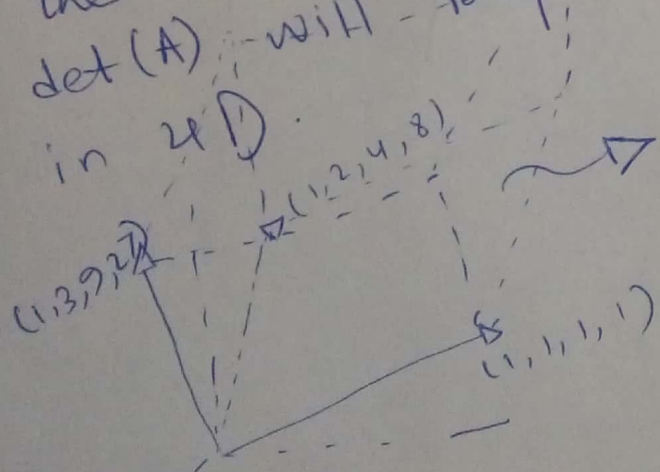 the
det(A) will
in 4D.
(1,2,4,8)
(1,3,9,27)
(1,1,1,1)